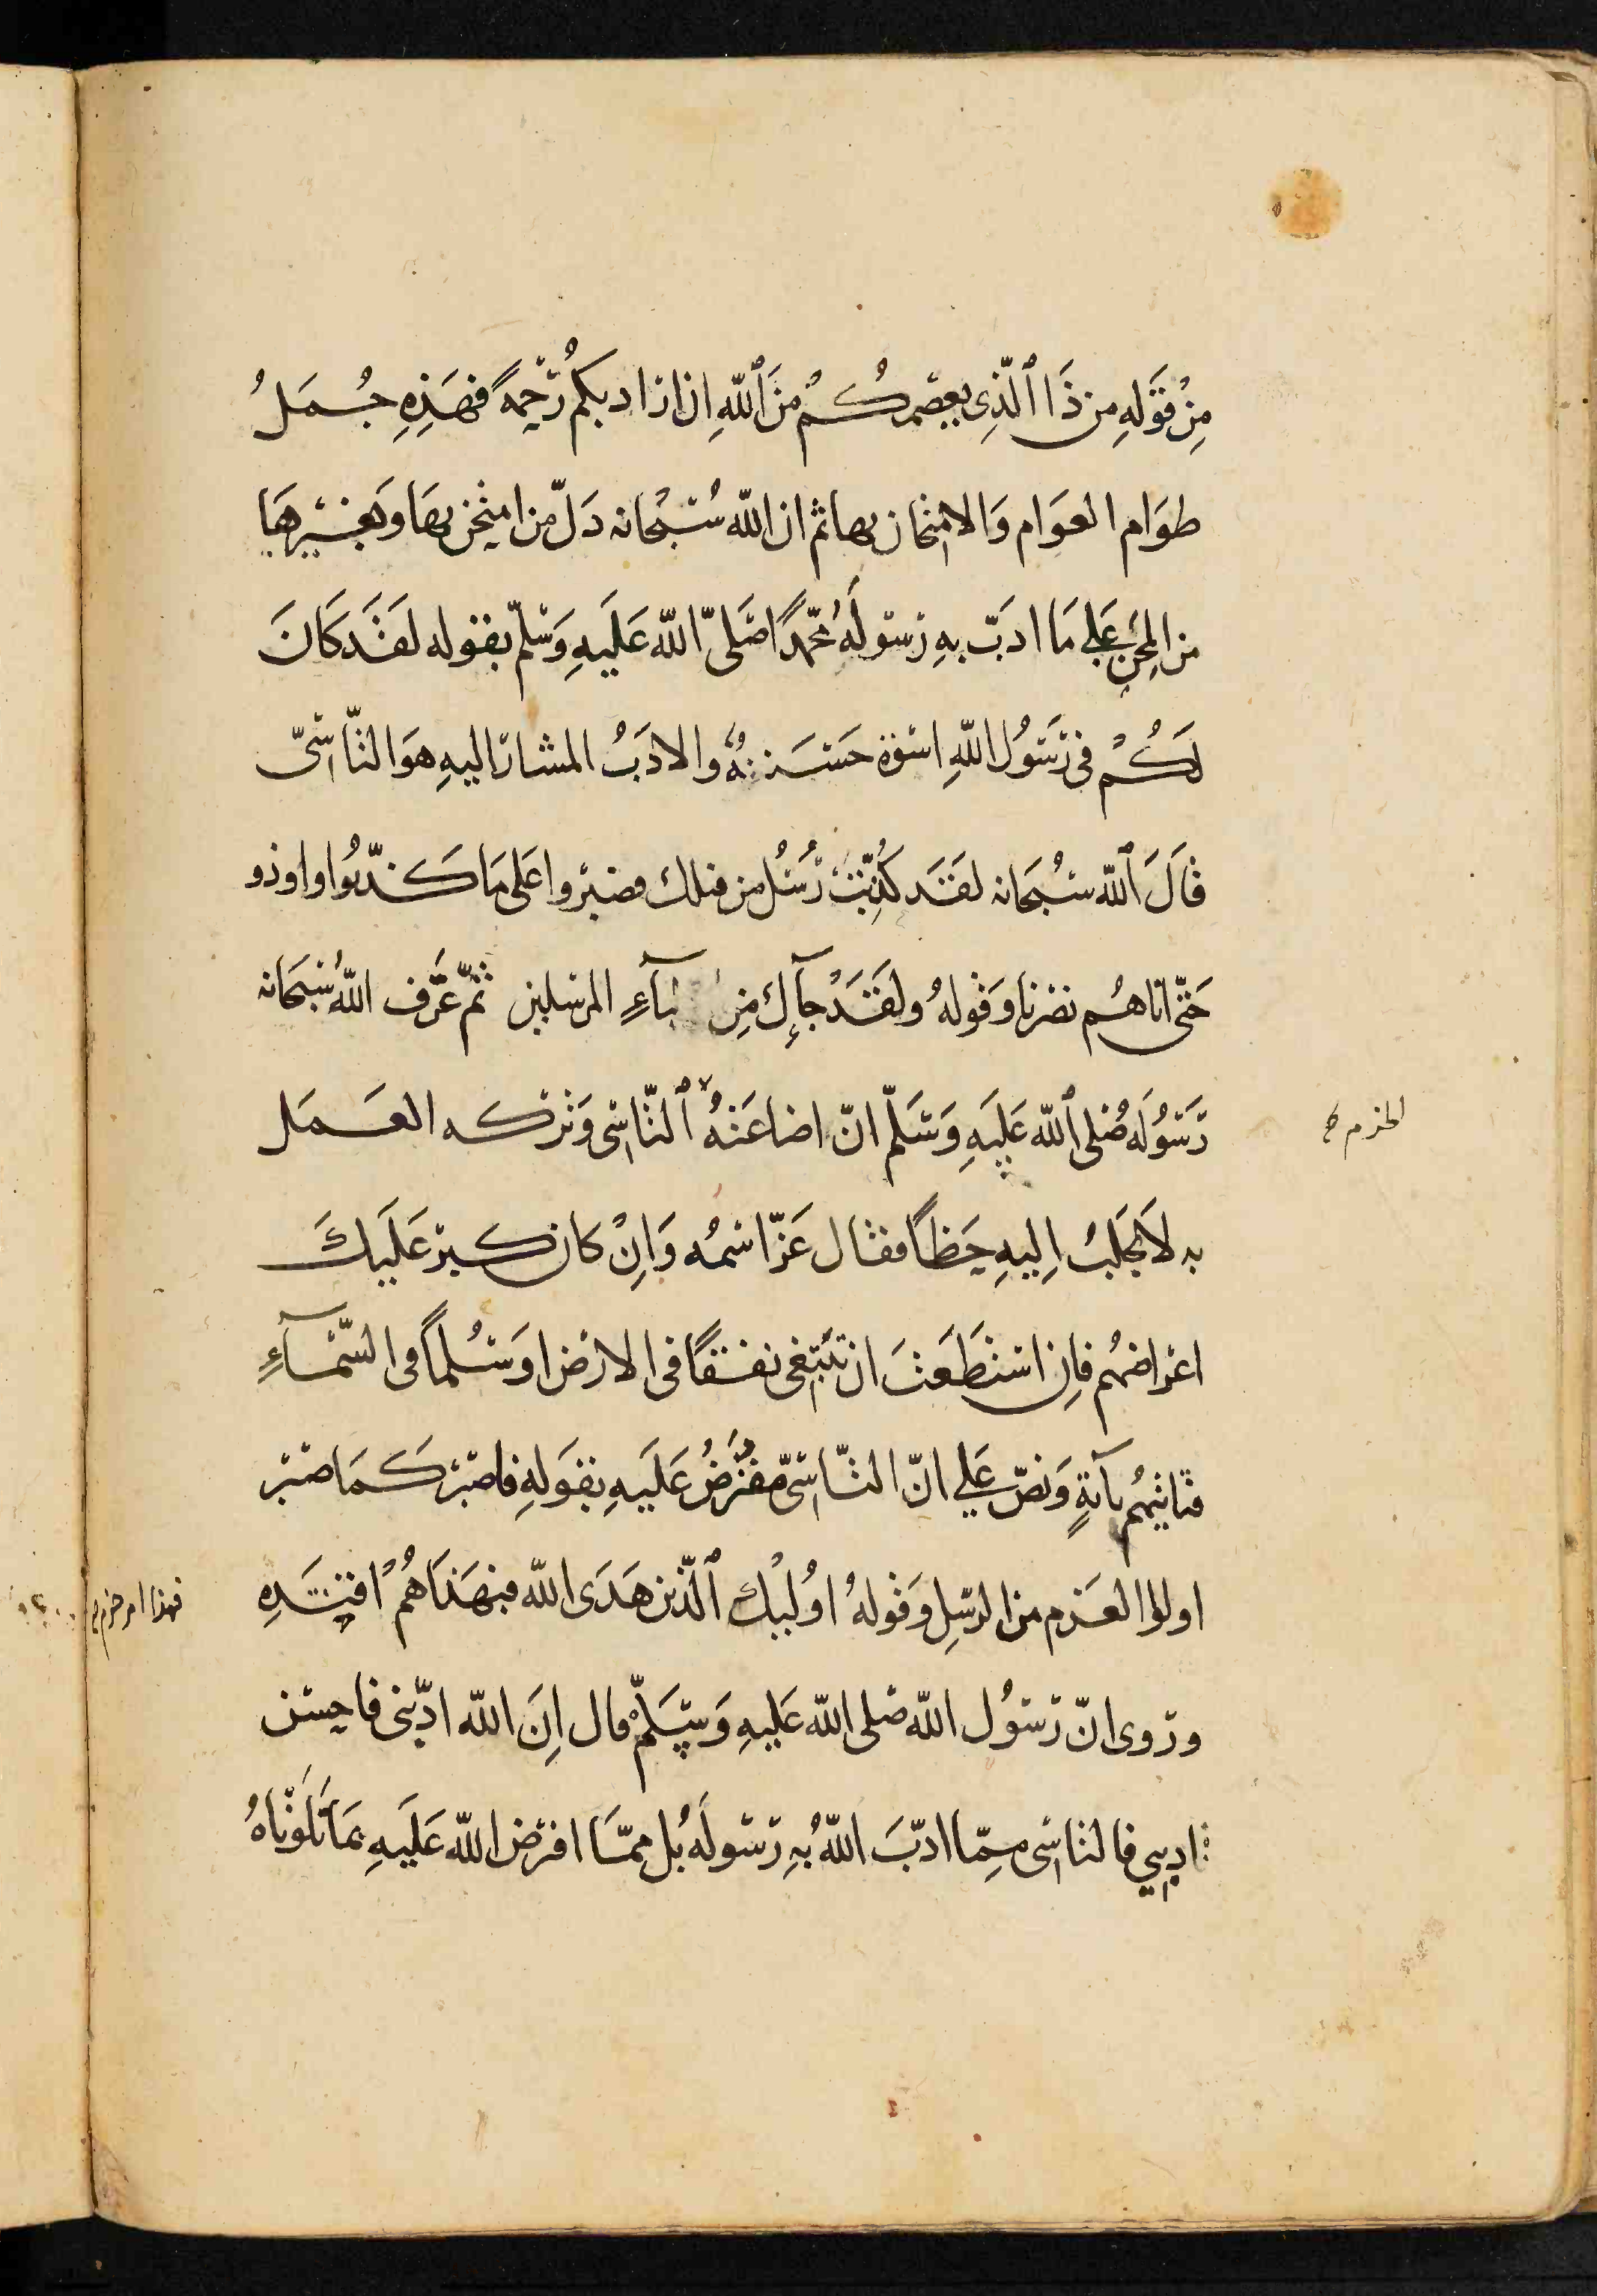 مِنْ قَوْلِهِ من ذَا ٱلَّذِي يعصمكُمْ مِنَ ٱللَّهِ ان اراد بكمُ رَحْمةً فهَذِهِ جُمَلُ
طوَام العوَام وَالامتحان بها ثم ان الله سُبْحانه دَلّ من امتُحن بهَا وَبغيرهَا
من المِحَن عَلي مَا ادَبّ بهِ رسولَهُ محّمدًا صَلىّ الله عَليهِ وَسلمّ بقوله لقَد كَانَ
لكُمْ في رَسُول اللهِ اسوة حَسَنةٌ والادَبُ المشار اليهِ هوَ التّاسّى
قالَ ٱلله سُبحَانه لقَد كُذِّبَتْ رُسُل من قبلك فصبروا عَلى مَا كذّبوُا واوذو
حَتّى اتاهُم نصرنا وَقولهُ ولقَدْ جآءك مِن نبآءِ المرسلين ثمّ عَرَّف اللهُ سُبحَانه
رَسُولَه صَلى ٱلله عَليَهِ وَسَلّم انّ اضاعَتهُ ٱلتّاسّى وَتركه العَمَل
الحزم
به لاَ يجَلبُ اِليهِ حَظاً فقال عَزّ اسمُه وَاِنْ كان كبر عَلَيكَ
اعراضهُم فاِن استطَعتَ ان تبْتغى نفقًا فى الارض اوَ سُلماً فى السّمآءِ
فتاتيهُم بآيةٍ وَنصّ عَلي انّ التّاسّى مفترَضُ عَلَيهِ بقوَلهِ فاصبر كَمَا صبَر
اولوا العَزم من الرسِل وَقولهُ اوُلئِك ٱلّذين هَدَى الله فبهَداهُمُ اقتَدِهِ
فهذا امر حزم
ورَوى انّ رَسُول الله صَلى الله عَليهِ وَسَلّم قال اِنَ الله ادّبنى فاحسَن
ادبي فالتاسّى ممِّا ادّبَ اللهُ بهِ رَسولهُ بل ممّا افترَض الله عَليَهِ بمَا تَلَوْناهُ